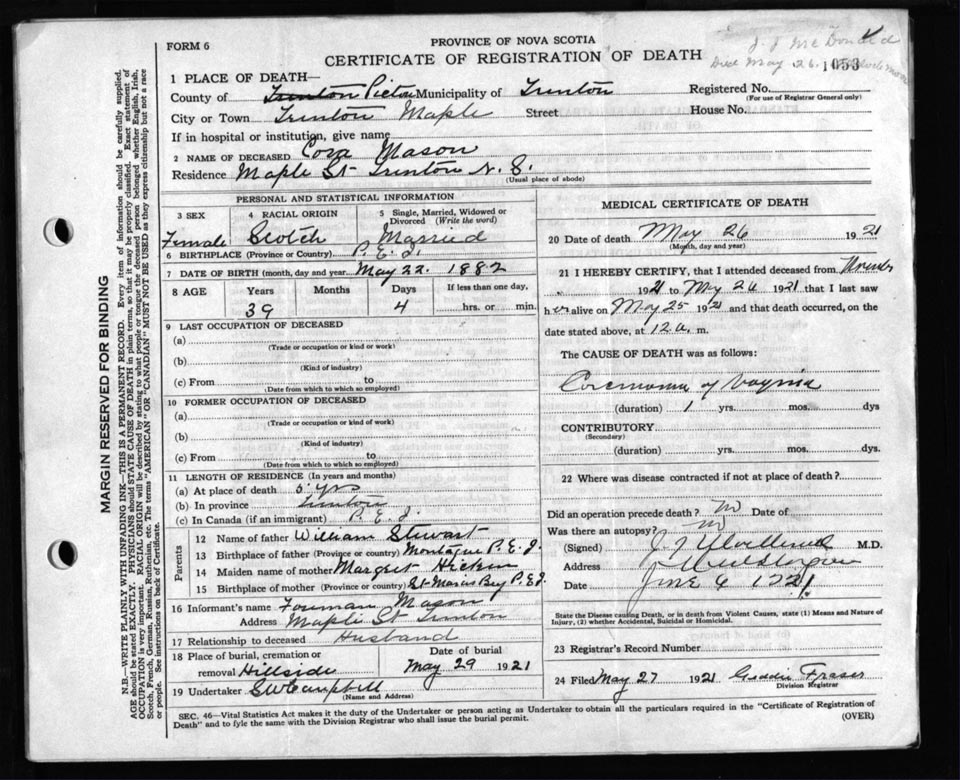 PROVINCE OF NOVA SCOTIA
FORM 6
CERTIFICATE OF REGISTRATION OF DEATH
J. J. McDonald
Died May 26.
1053
1 PLACE OF DEATH—
County of Trenton Pictou Municipality of Trenton
Registered No.
(For use of Registrar General only)
City or Town Trenton Maple Street House No.
If in hospital or institution, give name
2 NAME OF DECEASED Cora Mason
Residence Maple St Trenton N. S.
(Usual place of abode)
PERSONAL AND STATISTICAL INFORMATION
3 SEX
4 RACIAL ORIGIN
5 Single, Married, Widowed or Divorced (Write the word)
Female Scotch Married
6 BIRTHPLACE (Province or Country) P. E. I.
7 DATE OF BIRTH (month, day and year May 22. 1882
8 AGE Years Months Days If less than one day,
39 4 hrs. or min.
9 LAST OCCUPATION OF DECEASED
(a)
(Trade or occupation or kind or work)
(b)
(Kind of industry)
(c) From to
(Date from which to which so employed)
10 FORMER OCCUPATION OF DECEASED
(a)
(Trade or occupation or kind of work)
(b)
(Kind of industry)
(c) From to
(Date from which to which so employed)
11 LENGTH OF RESIDENCE (In years and months)
(a) At place of death 5 yrs
(b) In province Trenton
(c) In Canada (if an immigrant) P. E. I.
Parents
12 Name of father William Stewart
13 Birthplace of father (Province or country) Montague P. E. I.
14 Maiden name of mother Margret
15 Birthplace of mother (Province or country) St Bay P. E. I.
16 Informant's name Mason
Address Maple St Trenton
17 Relationship to deceased Husband
18 Place of burial, cremation or removal Hillside
Date of burial
May 29 1921
19 Undertaker S W Campbell
(Name and Address)
MEDICAL CERTIFICATE OF DEATH
20 Date of death May 26 1921
(Month, day and year)
21 I HEREBY CERTIFY, that I attended deceased from
" 1921 to May 26 1921 that I last saw
her alive on May 25 1921 and that death occurred, on the
date stated above, at 12 a. m.
The CAUSE OF DEATH was as follows:
of Vagina
(duration) 1 yrs. mos. dys
CONTRIBUTORY
(Secondary)
(duration) yrs. mos. dys.
22 Where was disease contracted if not at place of death?
Did an operation precede death? no Date of
Was there an autopsy? no
(Signed) M.D.
Address
Date June 6 1921
State the Disease causing Death, or in death from Violent Causes, state (1) Means and Nature of
Injury, (2) whether Accidental, Suicidal or Homicidal.
23 Registrar's Record Number
24 Filed May 27 1921 Fraser
Division Registrar
SEC. 46—Vital Statistics Act makes it the duty of the Undertaker or person acting as Undertaker to obtain all the particulars required in the "Certificate of Registration of
Death" and to fyle the same with the Division Registrar who shall issue the burial permit.
(OVER)
MARGIN RESERVED FOR BINDING
N.B.—WRITE PLAINLY WITH UNFADING INK—THIS IS A PERMANENT RECORD. Every item of information should be carefully supplied.
AGE should be stated EXACTLY. PHYSICIANS should STATE CAUSE OF DEATH in plain terms, so that it may be properly classified. Exact statement of
OCCUPATION is very important. RACIAL ORIGIN will be described by stating to what people or tongue the deceased person belonged whether English, Irish,
Scotch, French, German, Russian, Ruthenian, etc. The terms "AMERICAN" OR "CANADIAN" MUST NOT BE USED as they express citizenship but not a race
or people. See instructions on back of Certificate.